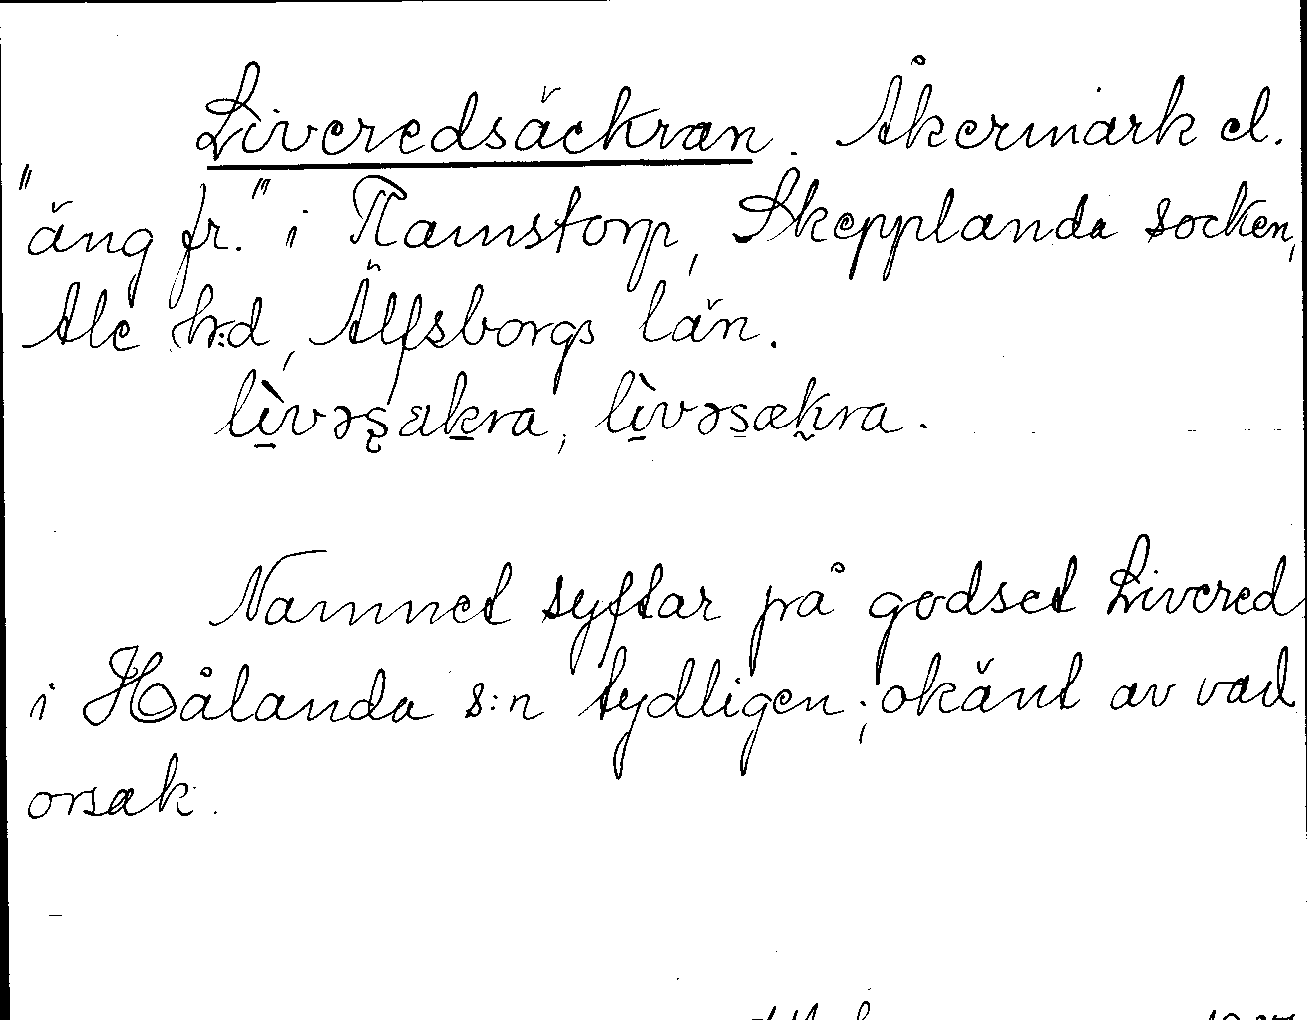 Liveredsäckran. Åkermark el.
"äng fr." i Ramstorp, Skepplanda socken,
Ale h:d, Älfsborgs län.
lìvəsakra, lìvəsækra.
Namnet syftar på godset Livered
i Hålanda s:n tydligen; okänt av vad
orsak.